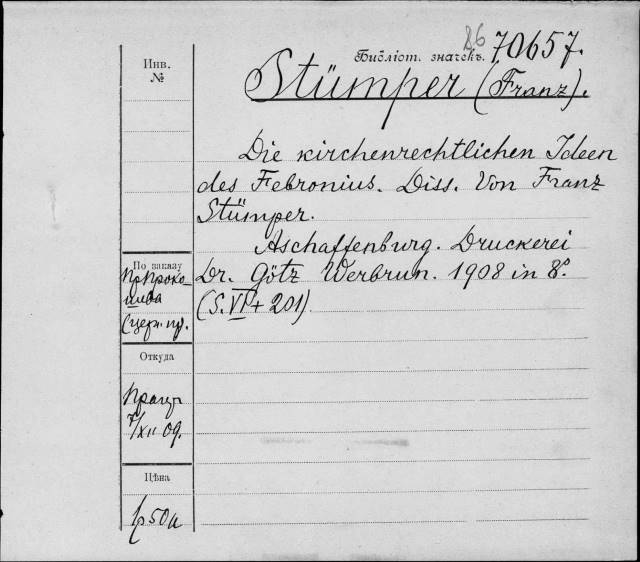 86
Библіот. значекъ. 70657.
Инв.
№
Stümper (Franz).
Die kirchenrechtlichen Ideen
des Febronius. Diss. Von Franz
Stümper.
Aschaffenburg. Druckerei
Dr. Götz Werbrun. 1908 in 8°.
(S. VI + 201).
По заказу
Пр. Проко-
шева
(церк. пр.
Откуда
7/XII 09.
Цѣна
1р 50к